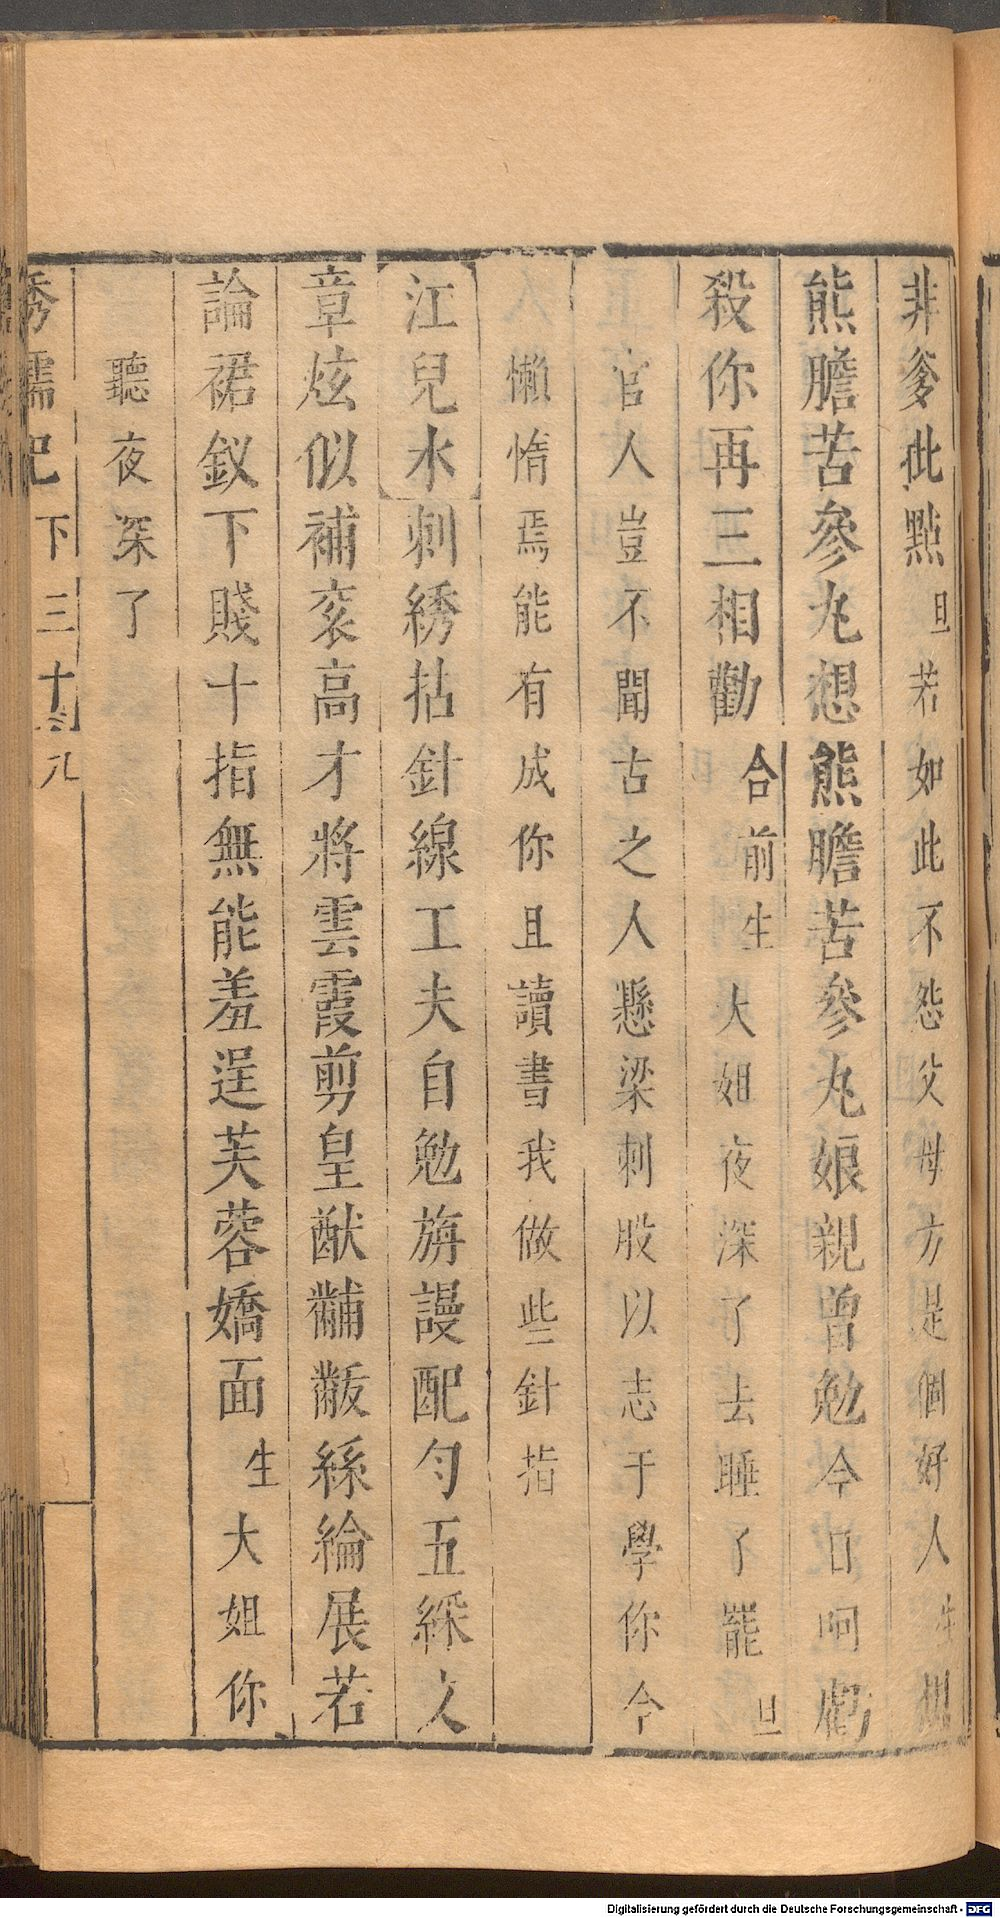 非爹此點旦若如此不怨父母方是個好人生想
熊膽苦參丸想熊膽苦參丸娘親曾勉今日呵勸
殺你再三相勸合前生大姐夜深了去睡了罷旦
官人豈不聞古之人懸梁刺股以志于學你今
懶惰焉能有成你且讀書我做些針指
江兒水刺綉拈針線工夫自勉旃謾配勻五綵文
章炫似補衮高才將雲霞剪皇猷黼黻絲綸展若
論裙釵下賤十指無能羞逞芙蓉嬌面生大姐你
聽夜深了
秀襦記下三十八
Digitalisierung gefördert durch die Deutsche Forschungsgemeinschaft - DFG